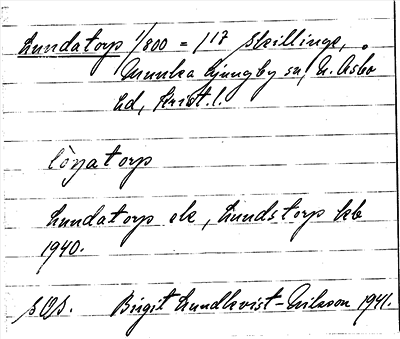 Lundatorp 1/800 = 1/17 Skillinge,
Munka Ljungby sn, N. Åsbo
hd, Krist. l.
Lundatorp ek, Lundstorp kb
1940.
SOS. Birgit Lundkvist-Nilsson 1941.